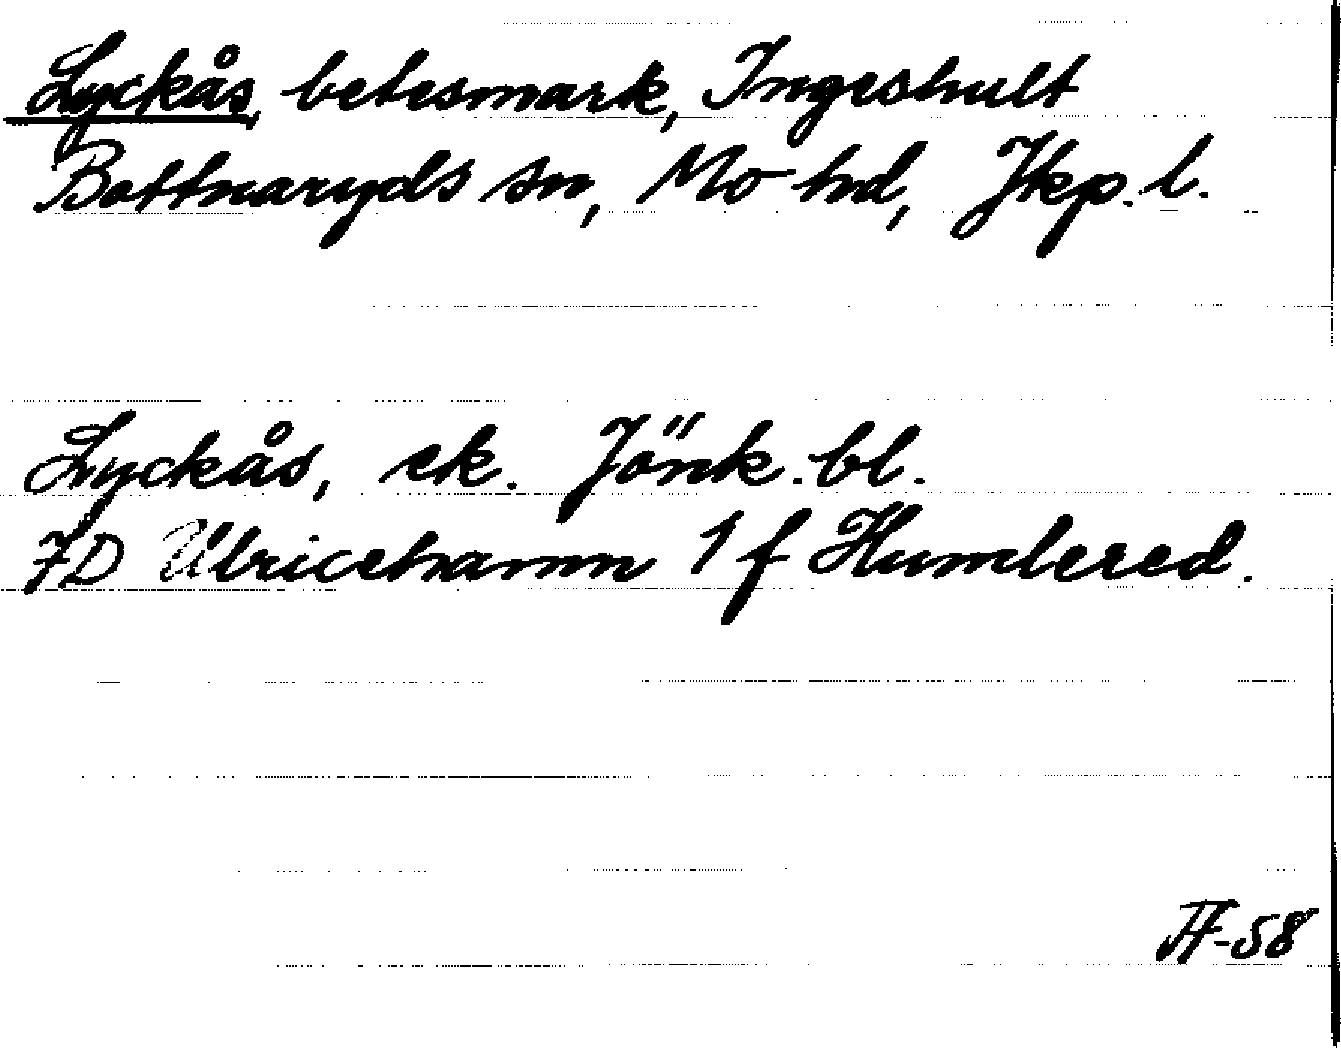 Lyckås, betesmark, Ingeshult
Bottnaryds sn, Mo hd, Jkp. l.
Lyckås, ek. Jönk. bl.
7D Ulricehamn 1 f Humlered.
-58